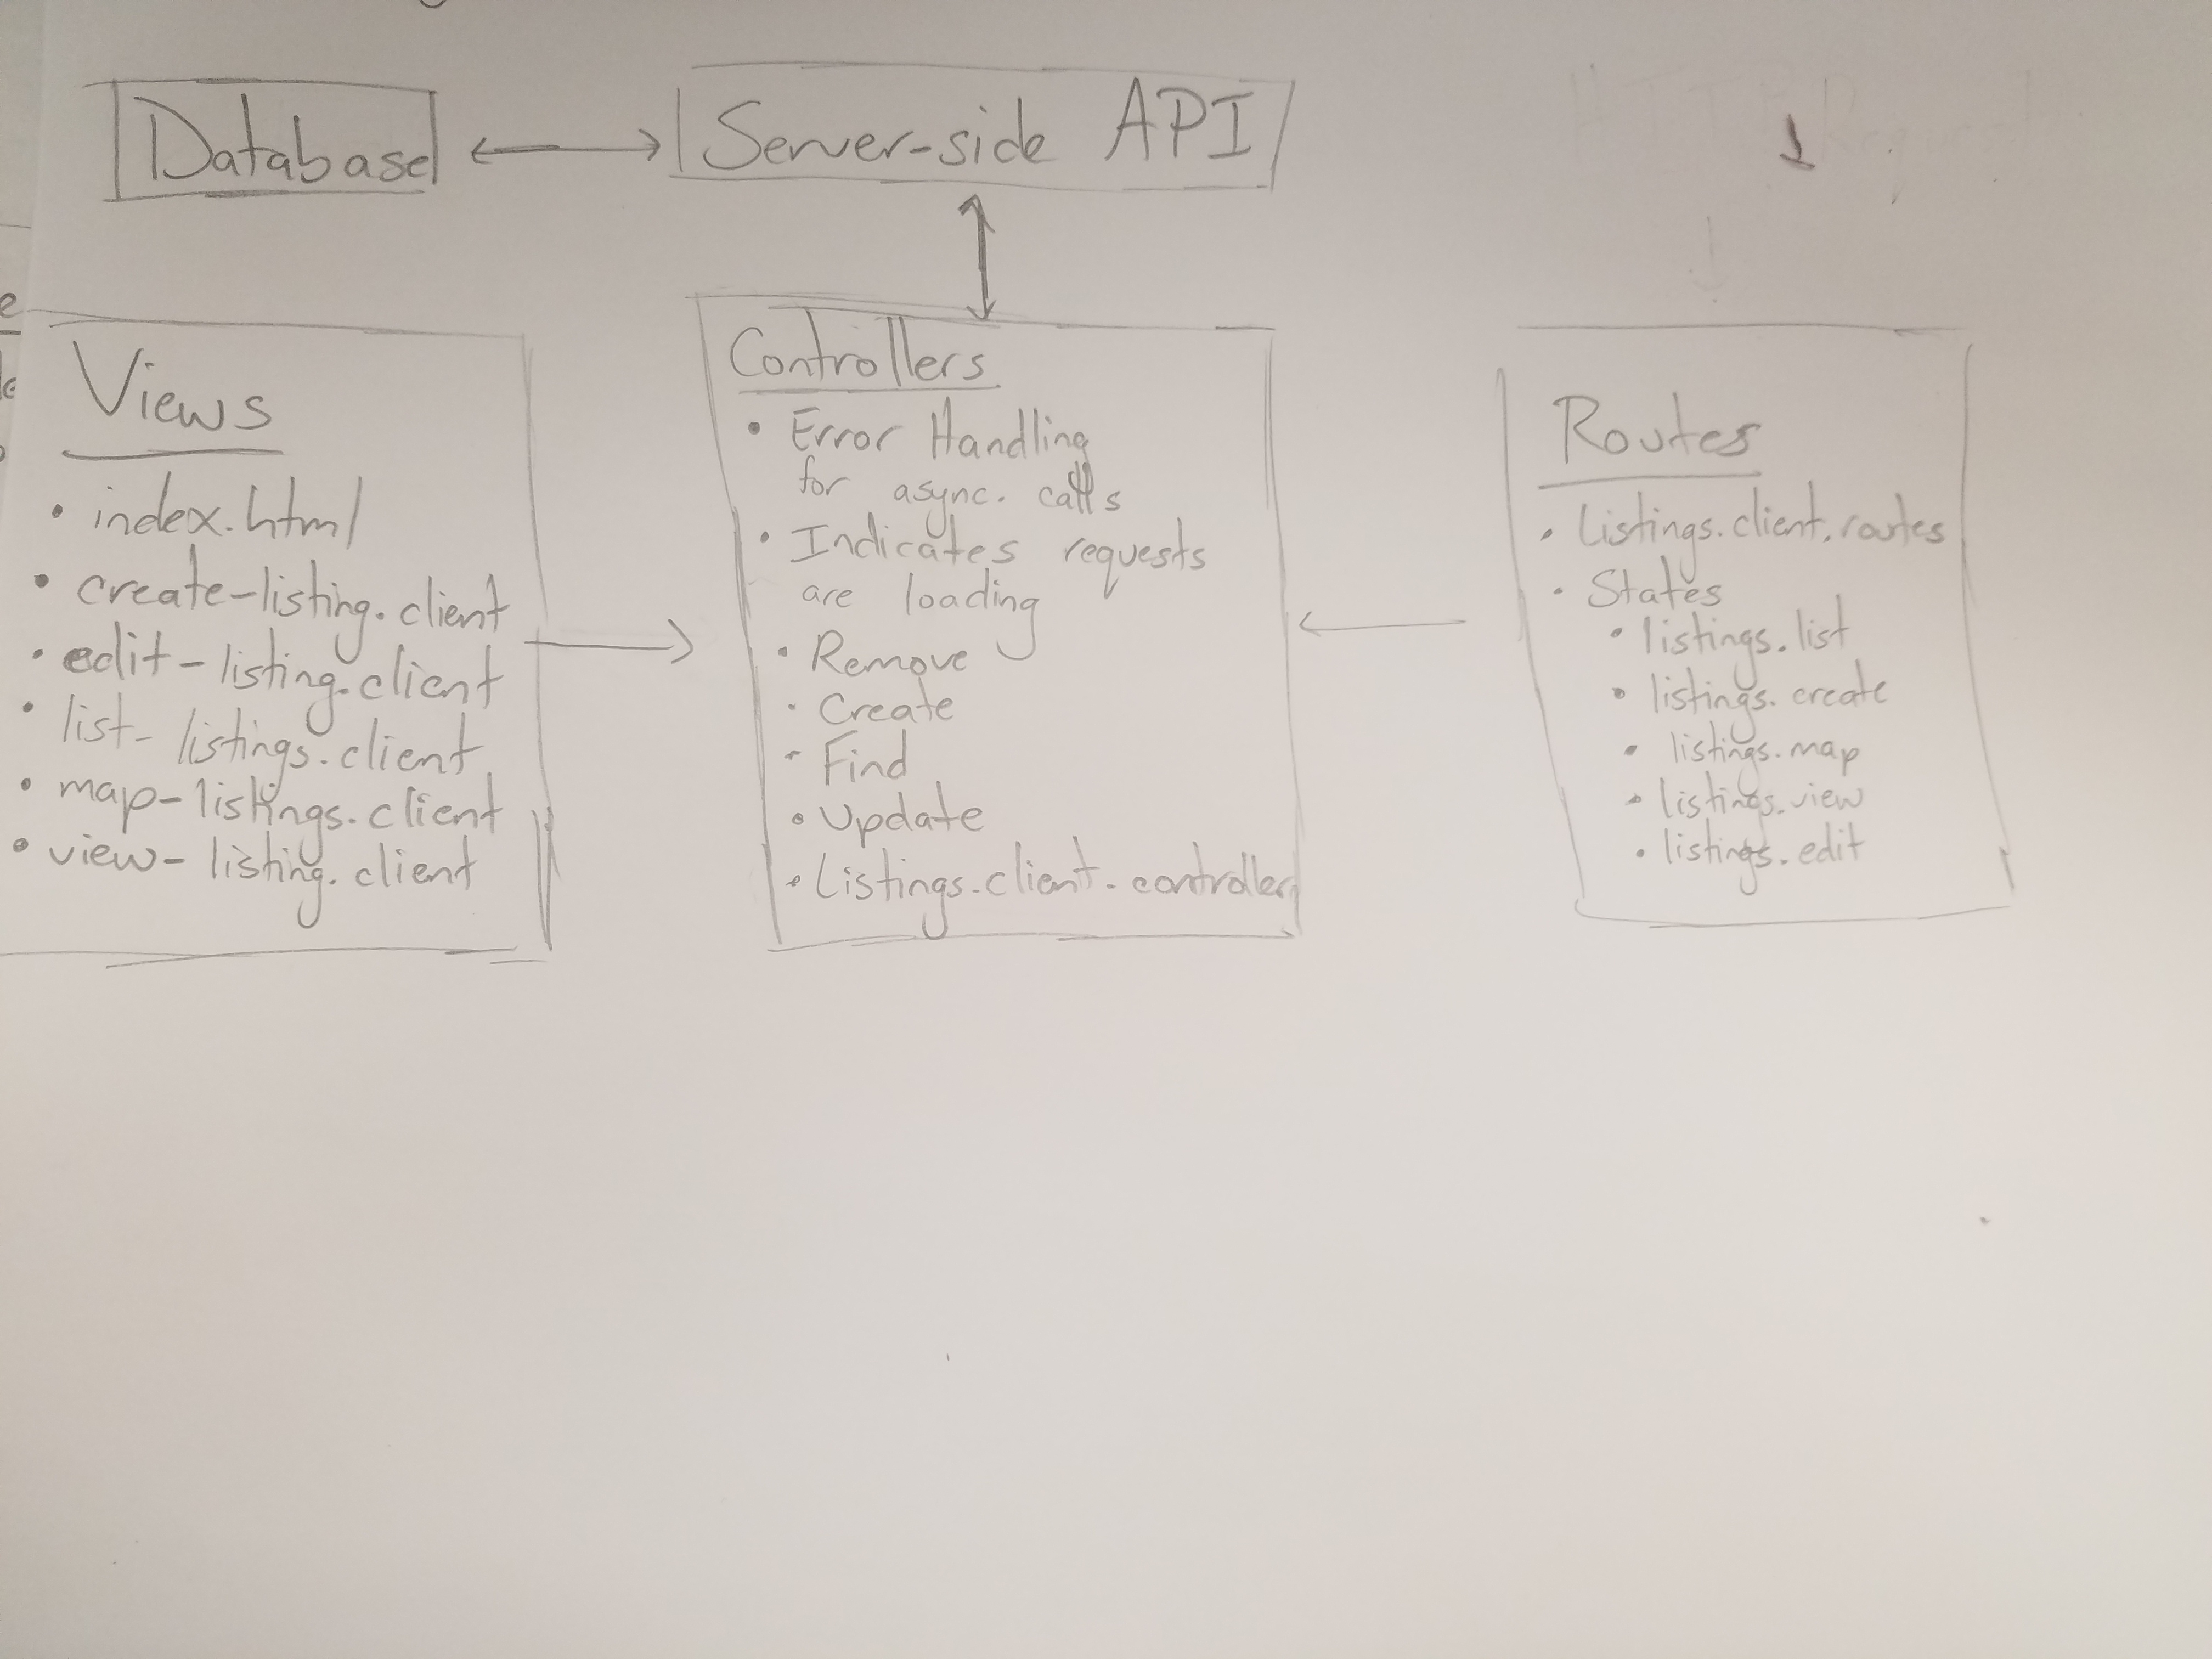 Database
Server-side API
Views
• index.html
• create-listing.client
• edit-listing.client
• list-listings.client
• map-listings.client
• view-listing.client
Controllers
• Error Handling
for async. calls
• Indicates requests
are loading
• Remove
• Create
• Find
• Update
• Listings.client.controller
Routes
• Listings.client.routes
• States
• listings.list
• listings.create
• listings.map
• listings.view
• listings.edit